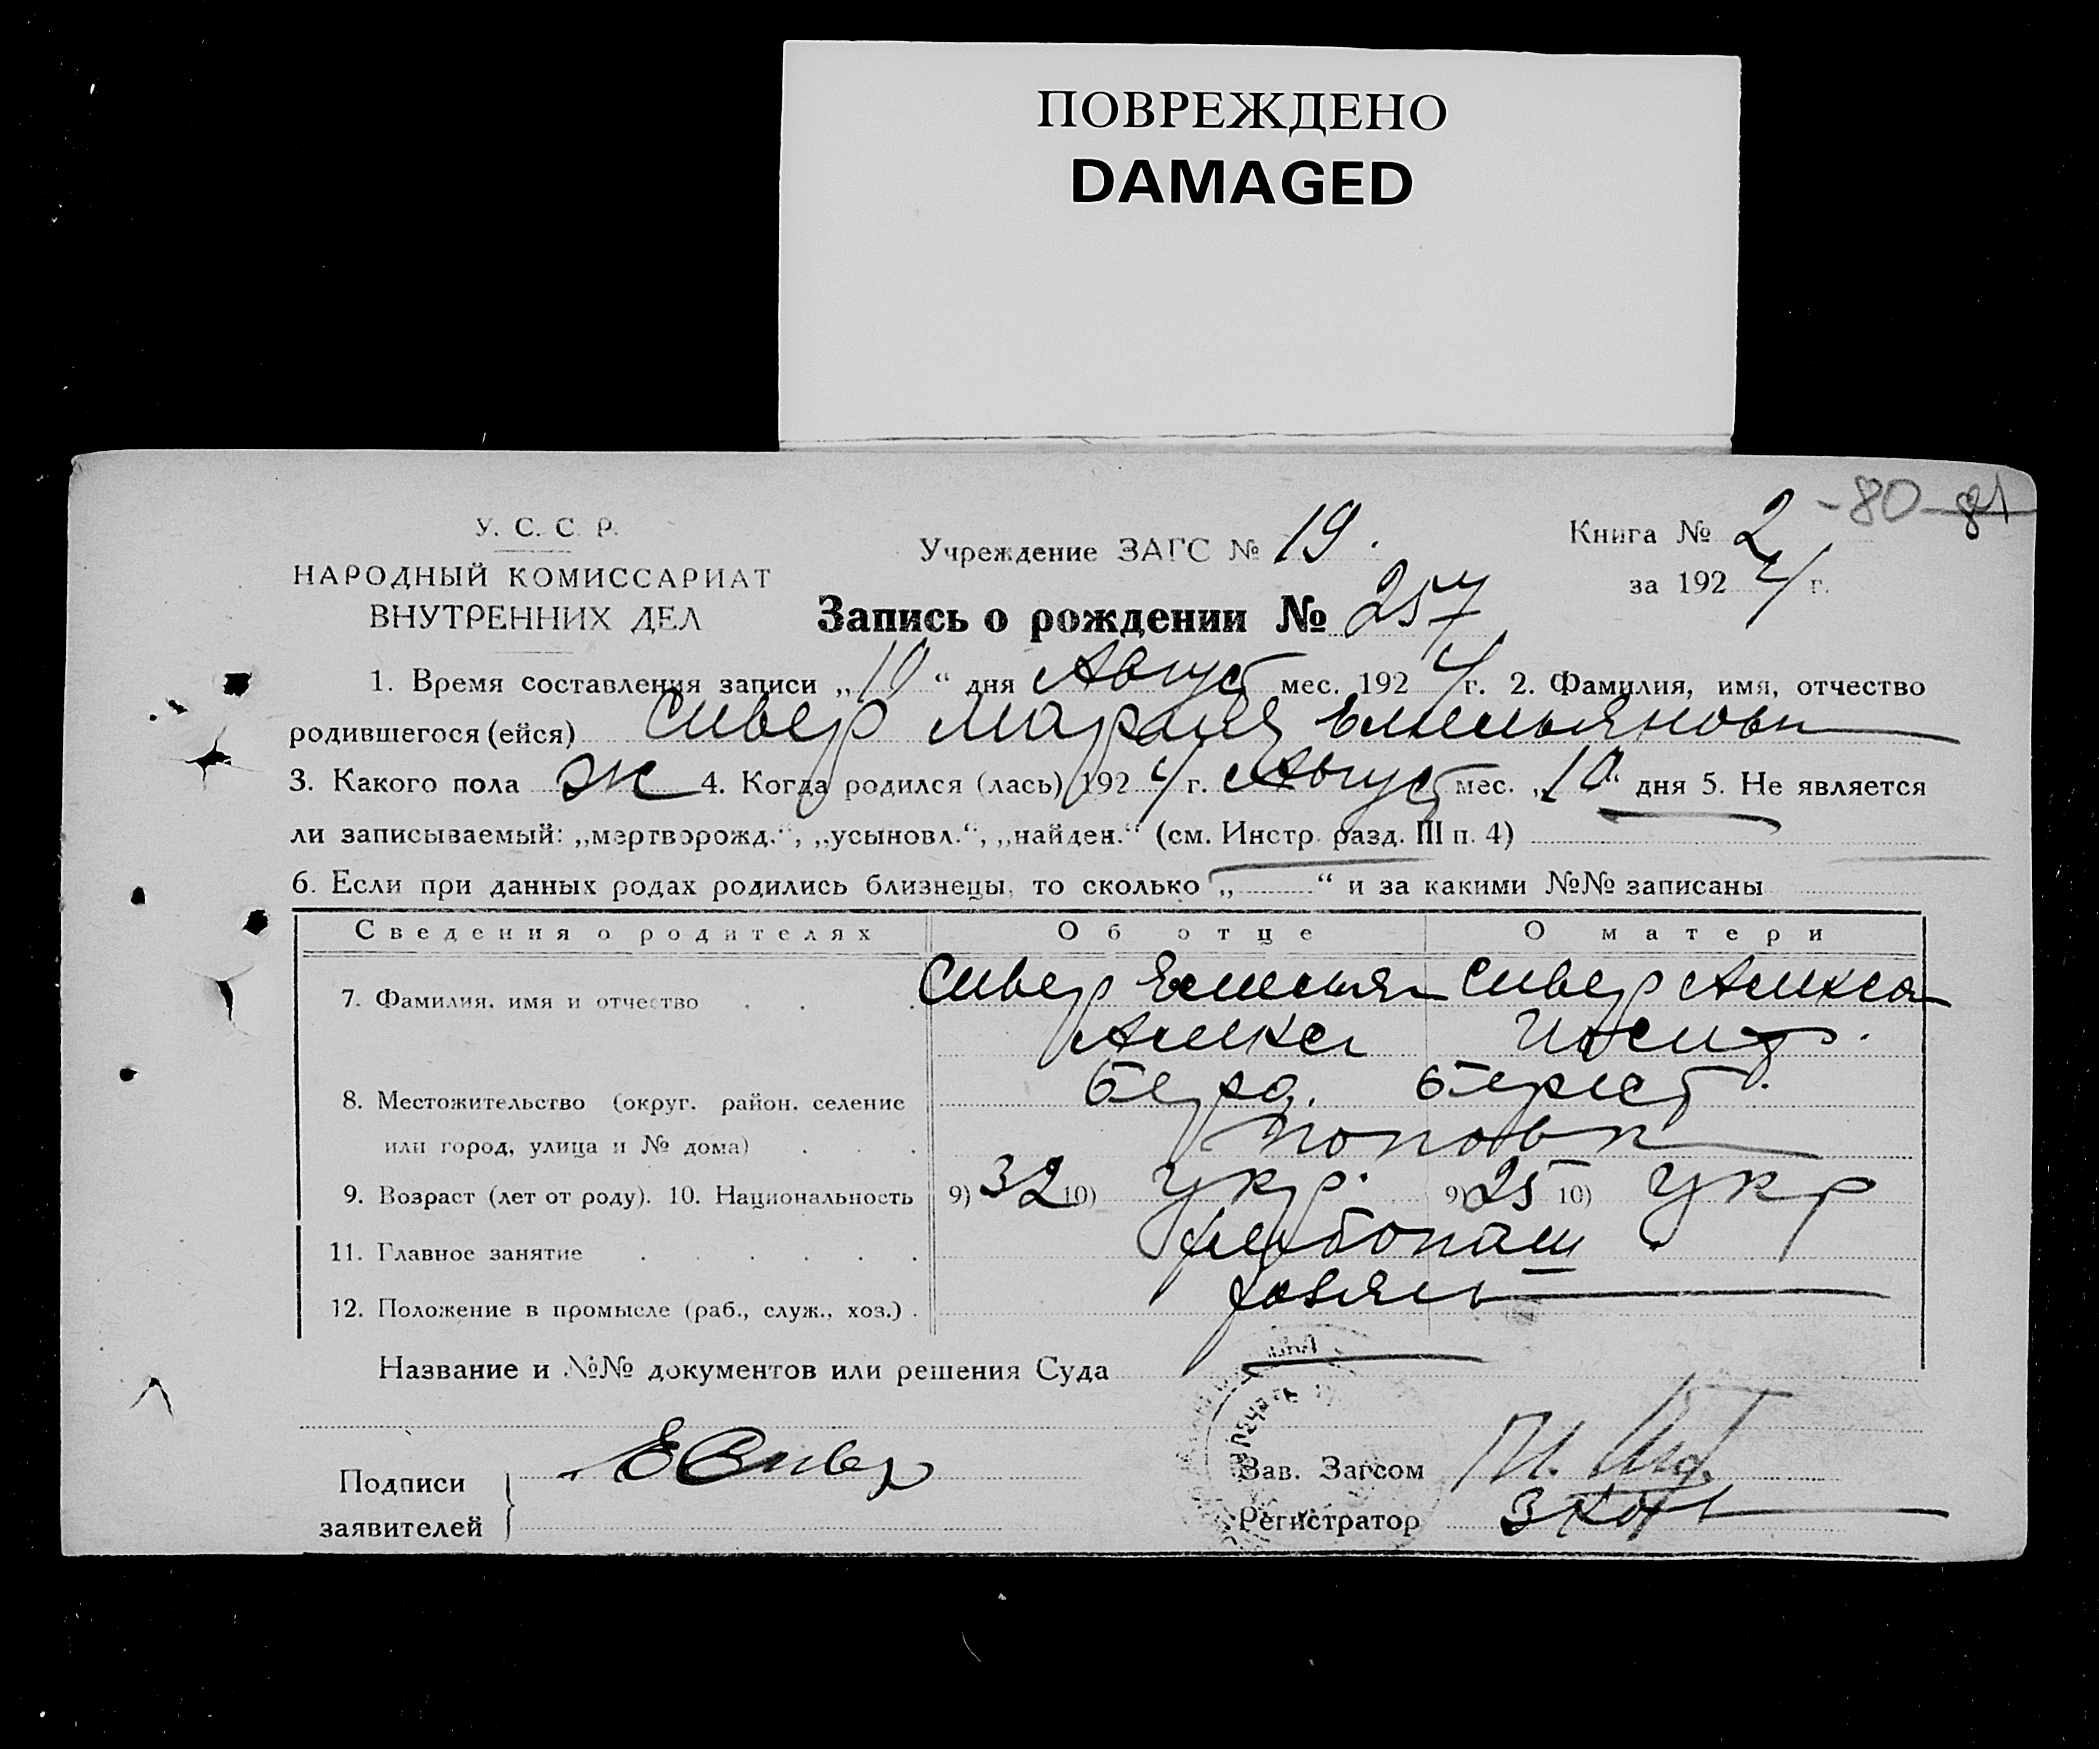 ПОВРЕЖДЕНО
DAMAGED
- 80 - 81
У. С. С. Р.
НАРОДНЫЙ КОМИССАРИАТ
ВНУТРЕННИХ ДЕЛ
Учреждение ЗАГС № 19.
Книга № 2
за 1924 г.
Запись о рождении № 257
1. Время составления записи „10“ дня Август мес. 1924 г. 2. Фамилия, имя, отчество
родившегося (ейся) Сивер Мария Емельяновн
3. Какого пола Ж 4. Когда родился (лась) 1924 г. Август мес. „10“ дня 5. Не является
ли записываемый: „мертворожд.“, „усыновл.“, „найден.“ (см. Инстр. разд. III п. 4)
6. Если при данных родах родились близнецы, то сколько „ “ и за какими №№ записаны
Сведения о родителях Об отце О матери
7. Фамилия, имя и отчество Сивер Емельян Сивер Алекса
Алексе
8. Местожительство (округ. район. селение Берд. Берест.
или город, улица и № дома) Поповк
9. Возраст (лет от роду). 10. Национальность 9) 32 10) укр. 9) 25 10) укр
11. Главное занятие хлебопаш
12. Положение в промысле (раб., служ., хоз.) хозяин
Название и №№ документов или решения Суда
Подписи
заявителей
Е Сивер
Зав. Загсом
Регистратор